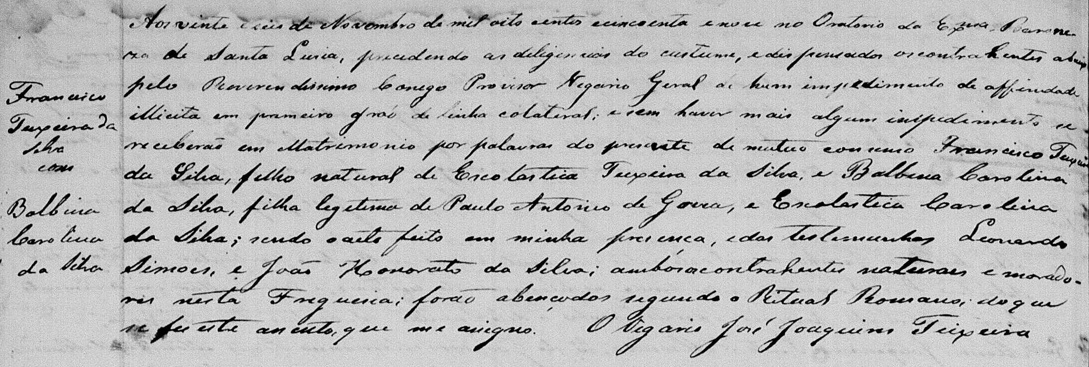 Francisco
Teixeira da
Silva
com
Balbina
Carolina
da Silva
Aos vinte e seis de Novembro de mil oito centos cincoenta e nove no Oratorio da Exma. Barone-
za de Santa Lusia, precedendo as diligencias do custume, e dispensados os contrahentes
pelo Reverendissimo Conego Provisor Vegario Geral de hum impedimento de affinidade
illicita em primeiro gráo de linha colateral; e sem haver mais algum impedimento se
receberão em Matrimonio por palavras do presente de mutuo consenso Francisco Teixeira
da Silva, filho natural de Escolastica Teixeira da Silva, e Balbina Carolina
da Silva, filha legitima de Paulo Antonio de, e Escolastica Carolina
da Silva; sendo o acto feito em minha presença, e das testemunhas Leonardo
Simoes, e João Honorato da Silva; ambos os contrahentes naturaes e morado-
res nesta Freguesia; forão abençoados segundo o Ritual Romano; do que
se fes este assento, que me assigno. O Vegario José Joaquim Teixeira